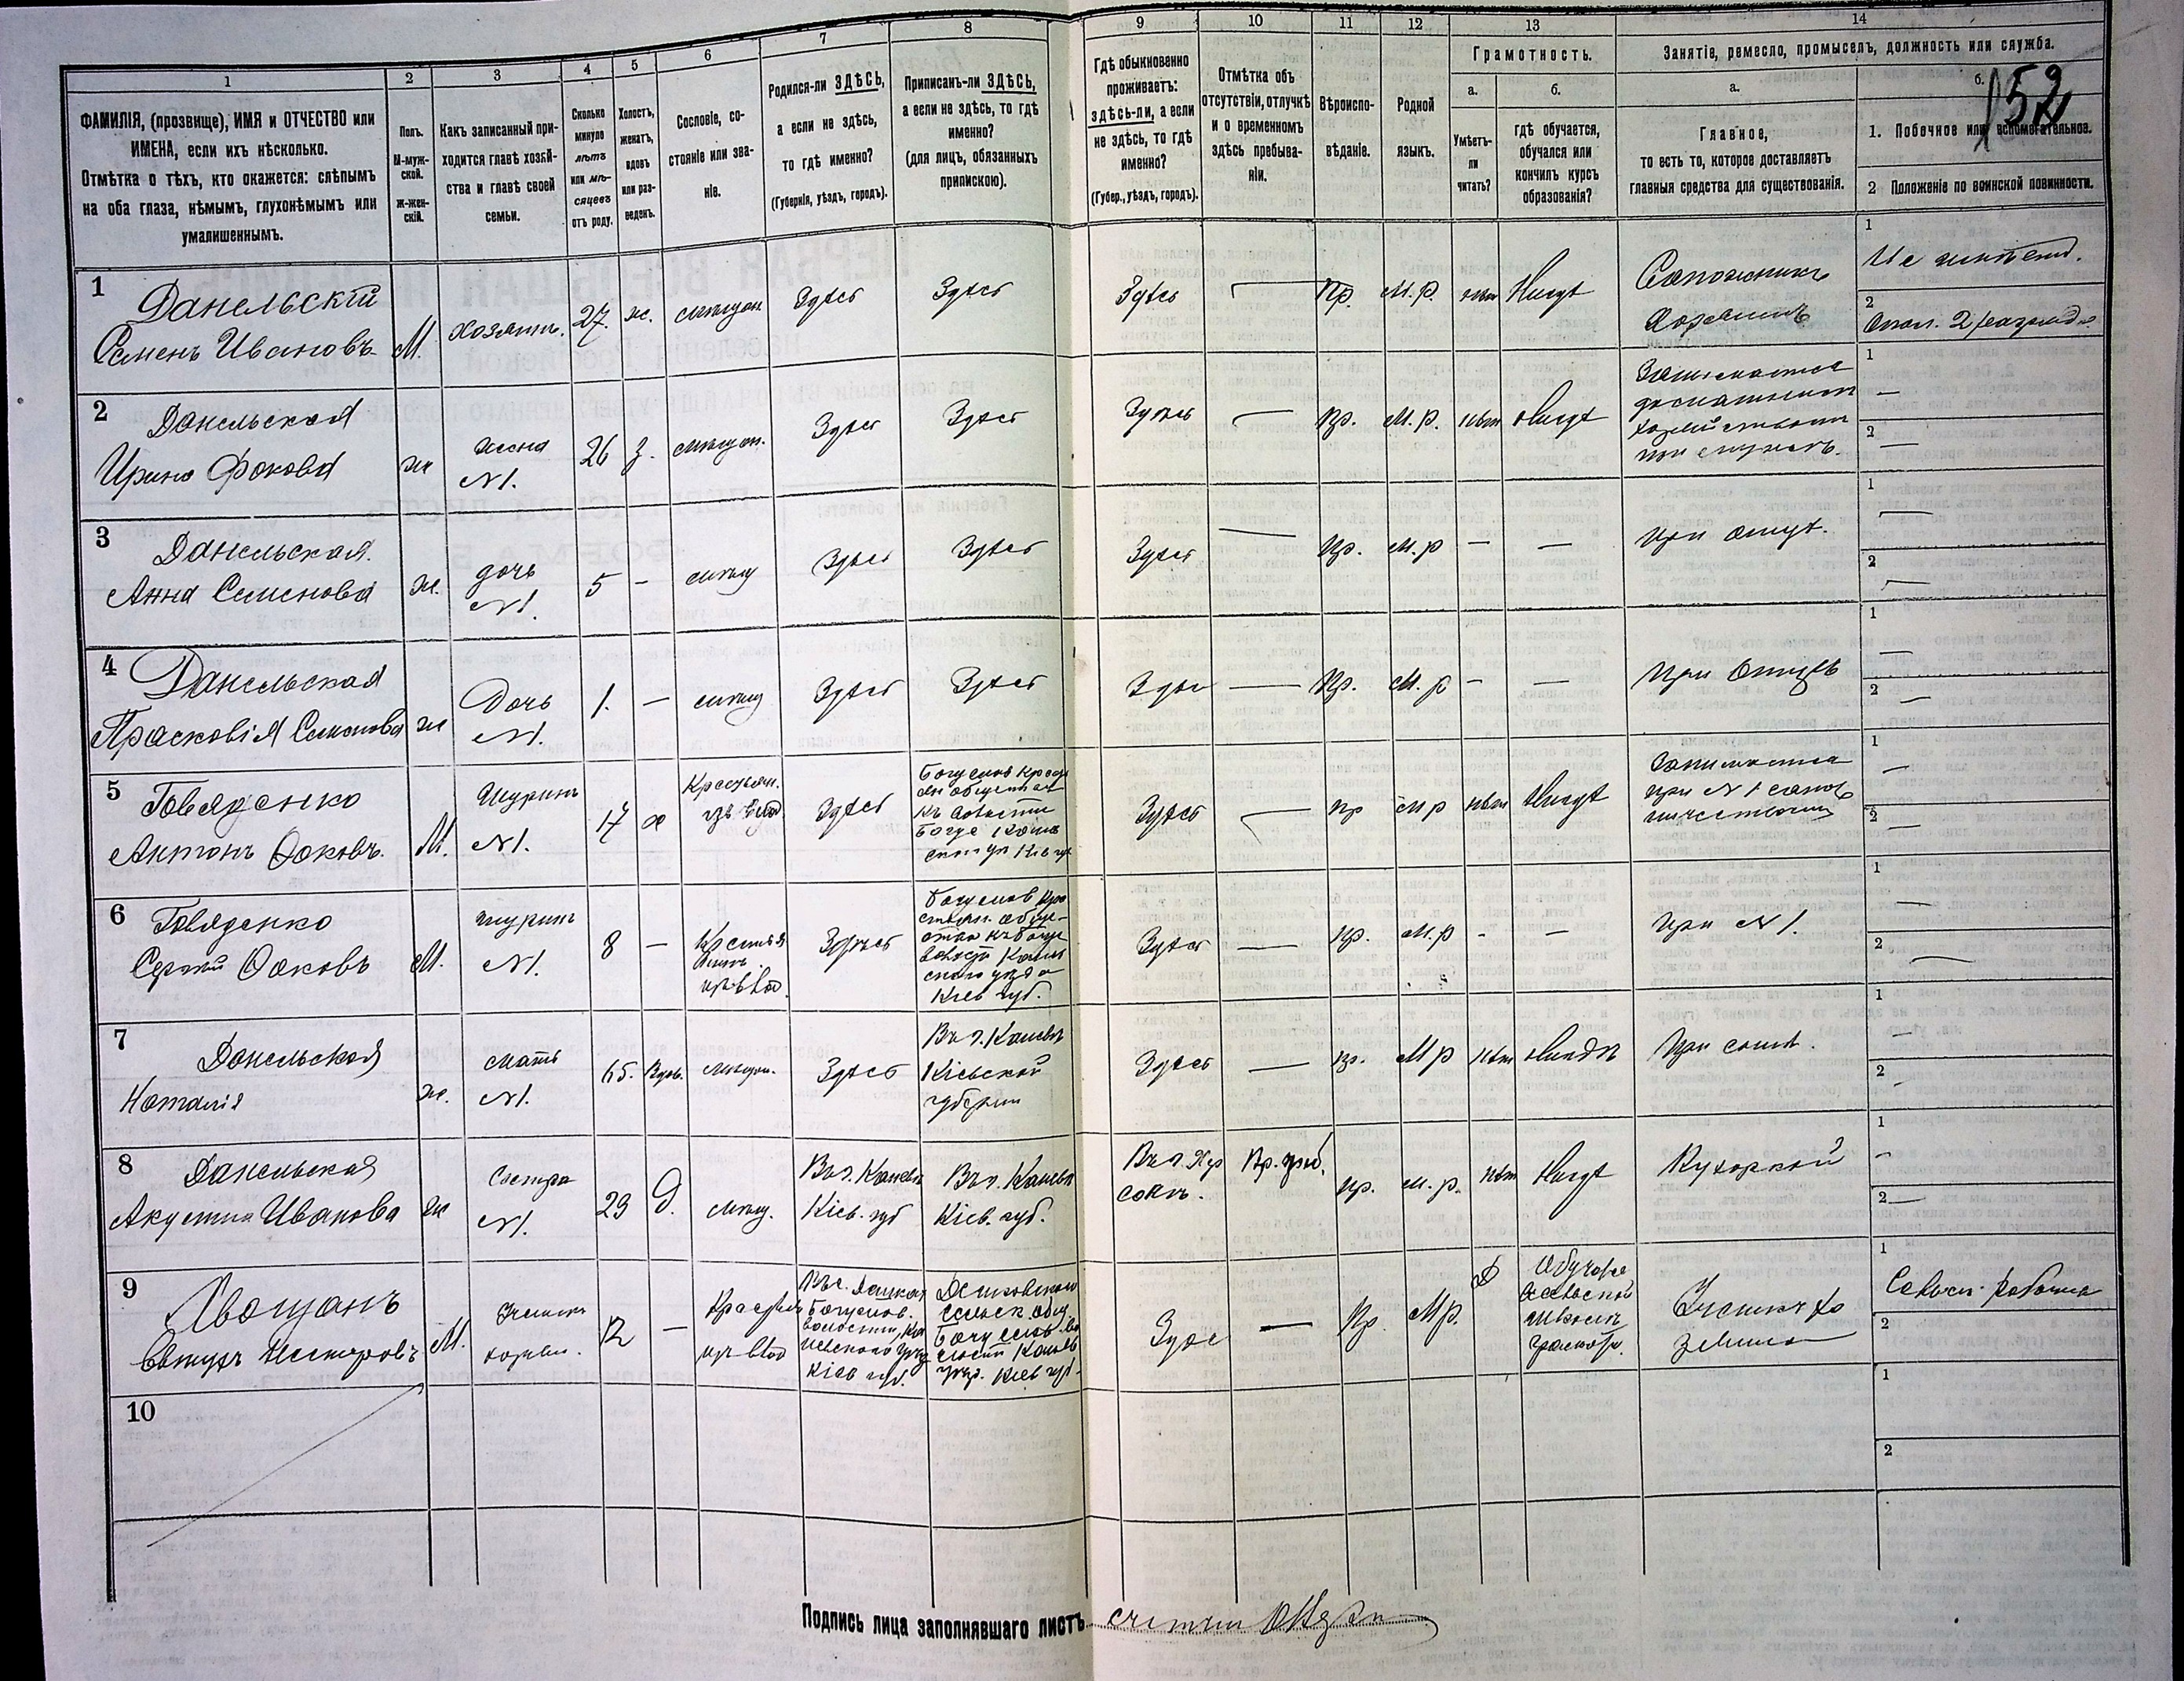 1
2
3
4
5
6
7
8
9
10
11
12
13
14
ФАМИЛІЯ, (прозвище), ИМЯ и ОТЧЕСТВО или
ИМЕНА, если ихъ нѣсколько.
Отмѣтка о тѣхъ, кто окажется: слѣпымъ
на оба глаза, нѣмымъ, глухонѣмымъ или
умалишеннымъ.
Полъ.
М-муж-
ской.
Ж-жен-
скій.
Какъ записанный при-
ходится главѣ хозяй-
ства и главѣ своей
семьи.
Сколько
минуло
лѣтъ
или мѣ-
сяцевъ
отъ роду.
Холостъ,
женатъ,
вдовъ
или раз-
веденъ.
Сословіе, со-
стояніе или зва-
ніе.
Родился-ли ЗДѢСЬ,
а если не здѣсь,
то гдѣ именно?
(Губернія, уѣздъ, городъ).
Приписанъ-ли ЗДѢСЬ,
а если не здѣсь, то гдѣ
именно?
(для лицъ, обязанныхъ
припискою).
Гдѣ обыкновенно
проживаетъ:
здѣсь-ли, а если
не здѣсь, то гдѣ
именно?
(Губер., уѣздъ, городъ).
Отмѣтка объ
отсутствіи, отлучкѣ
и о временномъ
здѣсь пребыва-
ніи.
Вѣроиспо-
вѣданіе.
Родной
языкъ.
Грамотность.
а.
Умѣетъ-
ли
читать?
б.
гдѣ обучается,
обучался или
кончилъ курсъ
образованія?
Занятіе, ремесло, промыселъ, должность или служба.
а.
Главное,
то есть то, которое доставляетъ
главныя средства для существованія.
б.
152
1. Побочное или вспомогательное.
2 Положеніе по воинской повинности.
1
Данельскій
Семенъ Ивановъ
М.
хозяинъ.
27.
ж.
мѣщан.
Здѣсь
Здѣсь
Здѣсь
—
Пр.
М. р.
нѣт
Нигдѣ
Сапожникъ
хозяинъ
1
Не имѣетъ.
2
Опол. 2 разряда
2
Данельская
Ирина Фокова
ж
жена
N 1.
26
з.
мѣщан.
Здѣсь
Здѣсь
Здѣсь
—
Пр.
М. р.
нѣт
Нигдѣ
Занимается
домашнимъ
хозяйствомъ
при мужѣ.
1
—
2
—
3
Данельская
Анна Семенова
ж.
дочь
N 1.
5
—
мѣщ
Здѣсь
Здѣсь
Здѣсь
—
Пр.
М. р
—
—
При отцѣ.
1
—
2
—
4
Данельская
Прасковія Семенова
ж
Дочь
N 1.
1.
—
мѣщ
Здѣсь
Здѣсь
Здѣсь
—
Пр.
М. р
—
—
При отцѣ
1
—
2
—
5
Говяденко
Антонъ Фоковъ.
М.
Шуринъ
N 1.
17
х
Крестьян.
изъ влад
Здѣсь
Здѣсь
—
пр
м р
нѣт
Нигдѣ
Занимается
при N 1 сапож
ничествомъ
1
—
2
—
6
Говяденко
Сергѣй Фоковъ
М.
шуринъ
N 1.
8
—
Здѣсь
Кіев губ.
Здѣсь
—
пр.
М. р
-
—
при N 1.
1
—
2
—
7
Данельская
Наталія
ж.
мать
N 1.
65.
Вдов.
мѣщан.
Здѣсь
Въ г. Каневѣ
Кіевской
губерніи
Здѣсь
—
пр.
М р
нѣт
Нигдѣ
При сынѣ.
1
—
2
—
8
Данельская
Акулина Иванова
ж
Сестра
N 1.
23
д.
мѣщ.
Въ г. Каневѣ
Кіев. губ
Въ г. Каневѣ
Кіев. губ.
Въ г. Хер
сонѣ.
Вр. приб.
пр.
м. р.
нѣт
Нигдѣ
Кухаркой
1
—
2
—
9
М.
Ученикъ
хозяин.
12
—
изъ влад
Кіев губ.
Здѣс
—
Пр.
М р.
1
2
10
1
2
Подпись лица заполнявшаго листъ